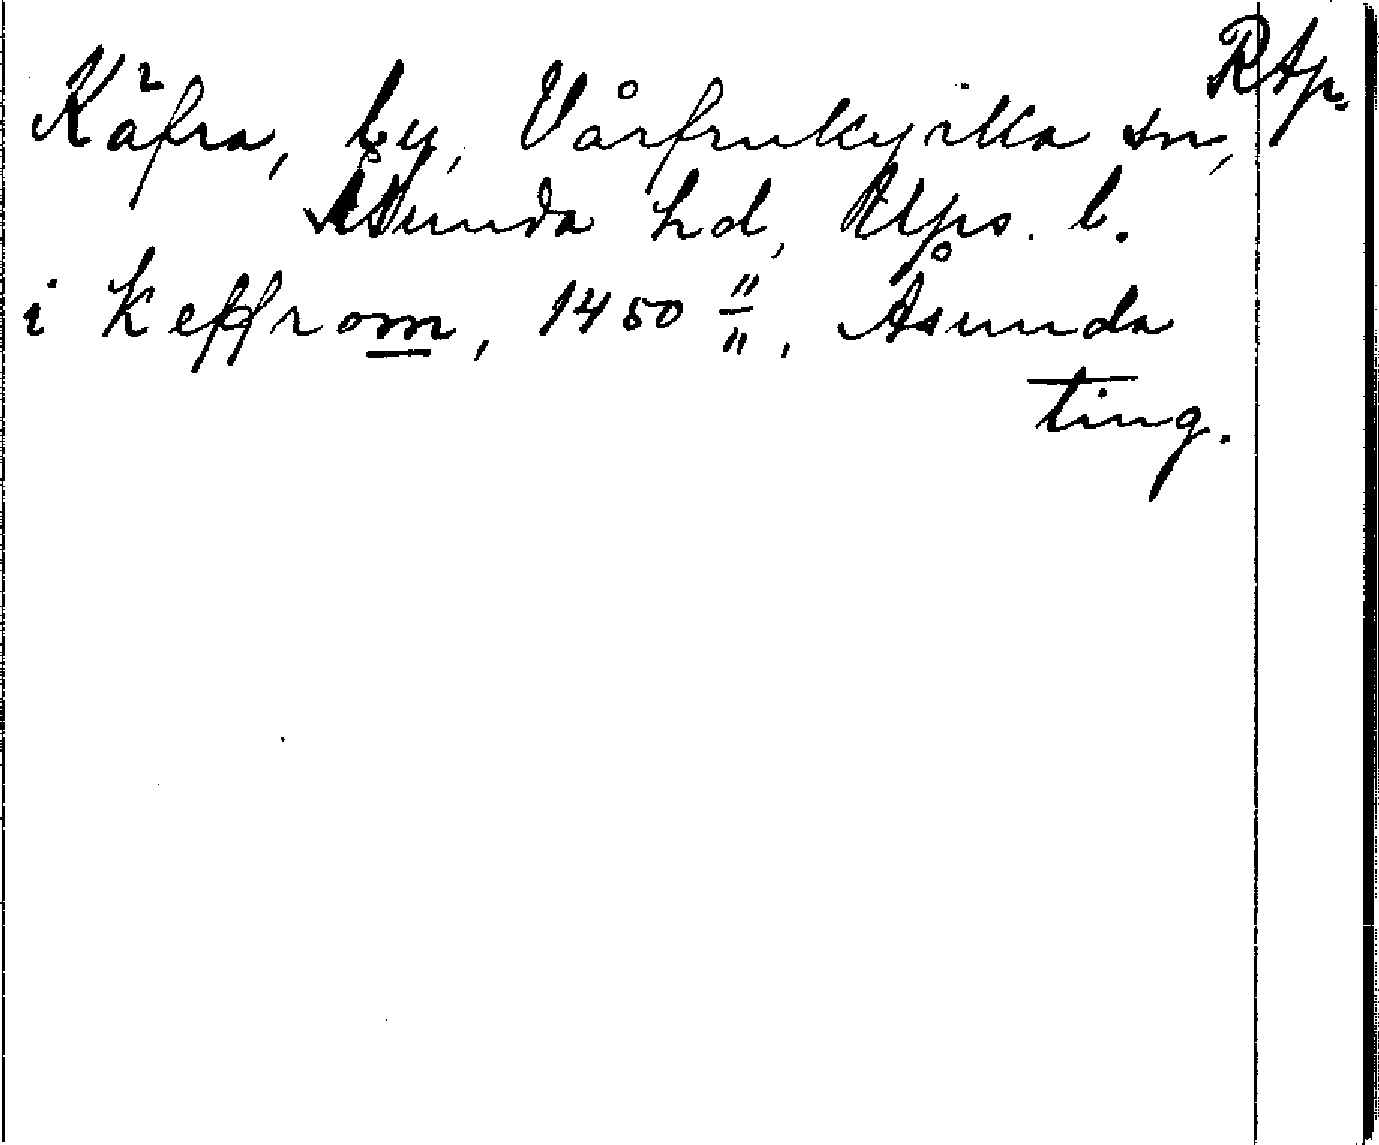 RAp.
Käfra, by, Vårfrukyrka sn,
Åsunda hd, Ups. l.
i Keffrom, 1450 11/11, Åsunda
ting.